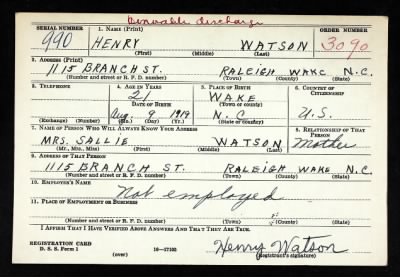 Honorable discharge
SERIAL NUMBER 1. NAME (Print) ORDER NUMBER
990 HENRY WATSON 3090
(First) (Middle) (Last)
2. ADDRESS (Print)
1115 BRANCH ST. RALEIGH WAKE N.C.
(Number and street or R. F. D. number) (Town) (County) (State)
3. TELEPHONE 4. AGE IN YEARS 5. PLACE OF BIRTH 6. COUNTRY OF CITIZENSHIP
21 WAKE
DATE OF BIRTH (Town or county)
Aug. 9 1919 N.C. U.S.
(Exchange) (Number) (Mo.) (Day) (Yr.) (State or country)
7. NAME OF PERSON WHO WILL ALWAYS KNOW YOUR ADDRESS 8. RELATIONSHIP OF THAT PERSON
MRS. SALLIE WATSON Mother
(Mr., Mrs., Miss) (First) (Middle) (Last)
9. ADDRESS OF THAT PERSON
1115 BRANCH ST. RALEIGH WAKE N.C.
(Number and street or R. F. D. number) (Town) (County) (State)
10. EMPLOYER'S NAME
Not employed
11. PLACE OF EMPLOYMENT OR BUSINESS
(Number and street or R. F. D. number) (Town) (County) (State)
I AFFIRM THAT I HAVE VERIFIED ABOVE ANSWERS AND THAT THEY ARE TRUE.
REGISTRATION CARD
D. S. S. Form 1 16—17105 Henry Watson
(over) (Registrant's signature)